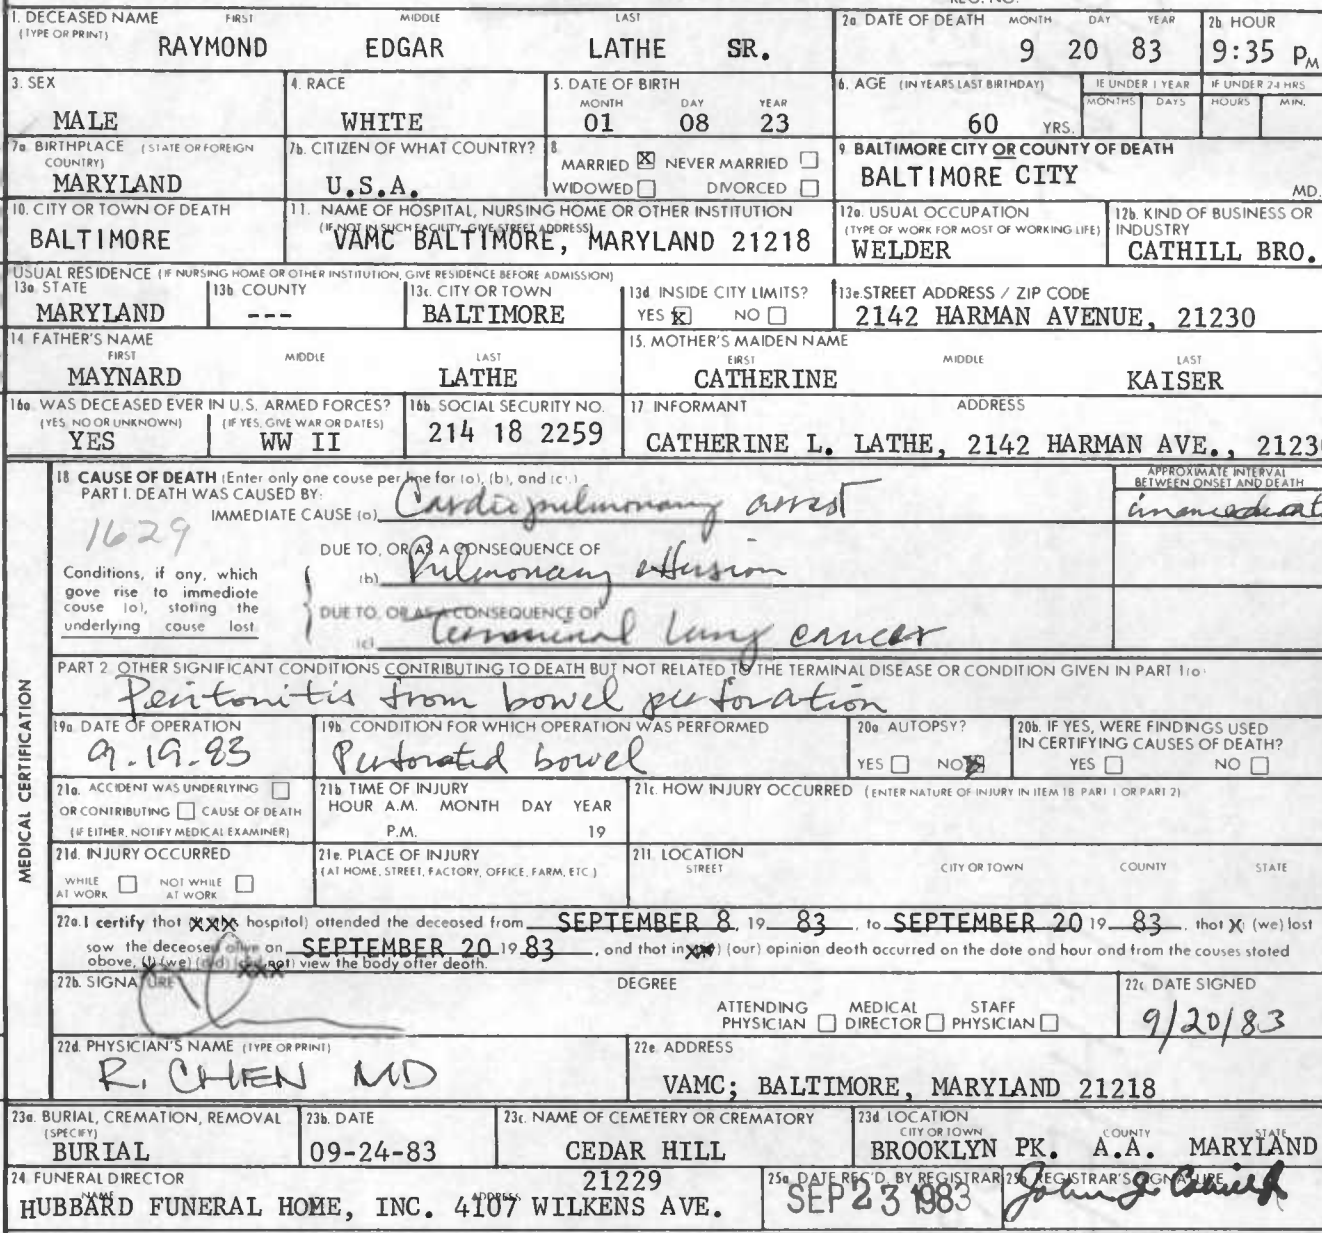 1. DECEASED NAME FIRST MIDDLE LAST
(TYPE OR PRINT)
RAYMOND EDGAR LATHE SR.
2a DATE OF DEATH MONTH DAY YEAR
9 20 83
2b HOUR
9:35 PM
3. SEX
MALE
4. RACE
WHITE
5. DATE OF BIRTH
MONTH DAY YEAR
01 08 23
6. AGE (IN YEARS LAST BIRTHDAY)
60 YRS.
IF UNDER 1 YEAR
MONTHS DAYS
IF UNDER 24 HRS
HOURS MIN.
7a BIRTHPLACE (STATE OR FOREIGN
COUNTRY)
MARYLAND
7b. CITIZEN OF WHAT COUNTRY?
U.S.A.
8
MARRIED X NEVER MARRIED
WIDOWED DIVORCED
9 BALTIMORE CITY OR COUNTY OF DEATH
BALTIMORE CITY
MD.
10. CITY OR TOWN OF DEATH
BALTIMORE
11. NAME OF HOSPITAL, NURSING HOME OR OTHER INSTITUTION
(IF NOT IN SUCH FACILITY, GIVE STREET ADDRESS)
VAMC BALTIMORE, MARYLAND 21218
12a. USUAL OCCUPATION
(TYPE OF WORK FOR MOST OF WORKING LIFE)
WELDER
12b. KIND OF BUSINESS OR
INDUSTRY
CATHILL BRO.
USUAL RESIDENCE (IF NURSING HOME OR OTHER INSTITUTION, GIVE RESIDENCE BEFORE ADMISSION)
13a STATE
MARYLAND
13b COUNTY
---
13c. CITY OR TOWN
BALTIMORE
13d INSIDE CITY LIMITS?
YES X NO
13e. STREET ADDRESS / ZIP CODE
2142 HARMAN AVENUE, 21230
14 FATHER'S NAME
FIRST MIDDLE LAST
MAYNARD LATHE
15. MOTHER'S MAIDEN NAME
FIRST MIDDLE LAST
CATHERINE KAISER
16a. WAS DECEASED EVER IN U.S. ARMED FORCES?
(YES, NO OR UNKNOWN) (IF YES, GIVE WAR OR DATES)
YES WW II
16b SOCIAL SECURITY NO.
214 18 2259
17 INFORMANT ADDRESS
CATHERINE L. LATHE, 2142 HARMAN AVE., 2123
MEDICAL CERTIFICATION
18 CAUSE OF DEATH (Enter only one cause per line for (a), (b), and (c).)
PART I. DEATH WAS CAUSED BY:
IMMEDIATE CAUSE (a) Cardiopulmonary arrest
APPROXIMATE INTERVAL
BETWEEN ONSET AND DEATH
1629
DUE TO, OR AS A CONSEQUENCE OF
(b) Pulmonary effusion
Conditions, if any, which
gave rise to immediate
cause (a), stating the
underlying cause last
DUE TO, OR AS A CONSEQUENCE OF
(c) Terminal lung cancer
PART 2 OTHER SIGNIFICANT CONDITIONS CONTRIBUTING TO DEATH BUT NOT RELATED TO THE TERMINAL DISEASE OR CONDITION GIVEN IN PART 1(a)
Peritonitis from bowel perforation
19a DATE OF OPERATION
9.19.83
19b CONDITION FOR WHICH OPERATION WAS PERFORMED
Perforated bowel
20a AUTOPSY?
YES NO X
20b. IF YES, WERE FINDINGS USED
IN CERTIFYING CAUSES OF DEATH?
YES NO
21a. ACCIDENT WAS UNDERLYING
OR CONTRIBUTING CAUSE OF DEATH
(IF EITHER, NOTIFY MEDICAL EXAMINER)
21b TIME OF INJURY
HOUR A.M. MONTH DAY YEAR
P.M. 19
21c. HOW INJURY OCCURRED (ENTER NATURE OF INJURY IN ITEM 18 PART 1 OR PART 2)
21d. INJURY OCCURRED
WHILE NOT WHILE
AT WORK AT WORK
21e. PLACE OF INJURY
(AT HOME, STREET, FACTORY, OFFICE, FARM, ETC.)
21f. LOCATION
STREET CITY OR TOWN COUNTY STATE
22a. I certify that XXX hospital) attended the deceased from SEPTEMBER 8, 19 83, to SEPTEMBER 20 19 83, that X (we) last
saw the deceased alive on SEPTEMBER 20 19 83, and that in XXX (our) opinion death occurred on the date and hour and from the causes stated
above, (I) (we) (did) XXX not) view the body after death.
22b. SIGNATURE
DEGREE
ATTENDING MEDICAL STAFF
PHYSICIAN DIRECTOR PHYSICIAN
22c DATE SIGNED
9/20/83
22d. PHYSICIAN'S NAME (TYPE OR PRINT)
R. CHEN MD
22e. ADDRESS
VAMC; BALTIMORE, MARYLAND 21218
23a. BURIAL, CREMATION, REMOVAL
(SPECIFY)
BURIAL
23b. DATE
09-24-83
23c. NAME OF CEMETERY OR CREMATORY
CEDAR HILL
23d LOCATION
CITY OR TOWN COUNTY STATE
BROOKLYN PK. A.A. MARYLAND
24 FUNERAL DIRECTOR
NAME ADDRESS
21229
HUBBARD FUNERAL HOME, INC. 4107 WILKENS AVE.
25a. DATE REC'D. BY REGISTRAR
SEP 23 1983
25b. REGISTRAR'S SIGNATURE
John J.